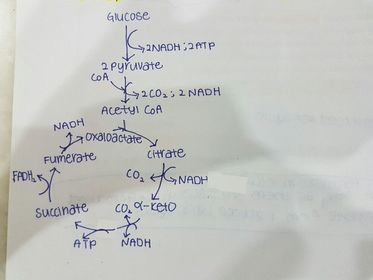 Glucose
2NADH ; 2ATP
2 Pyruvate
CoA
2CO₂ ; 2 NADH
Acetyl CoA
NADH
Oxaloactate
Fumerate
Citrate
FADH₂
CO₂
NADH
Succinate
CO₂
α-keto
ATP
NADH